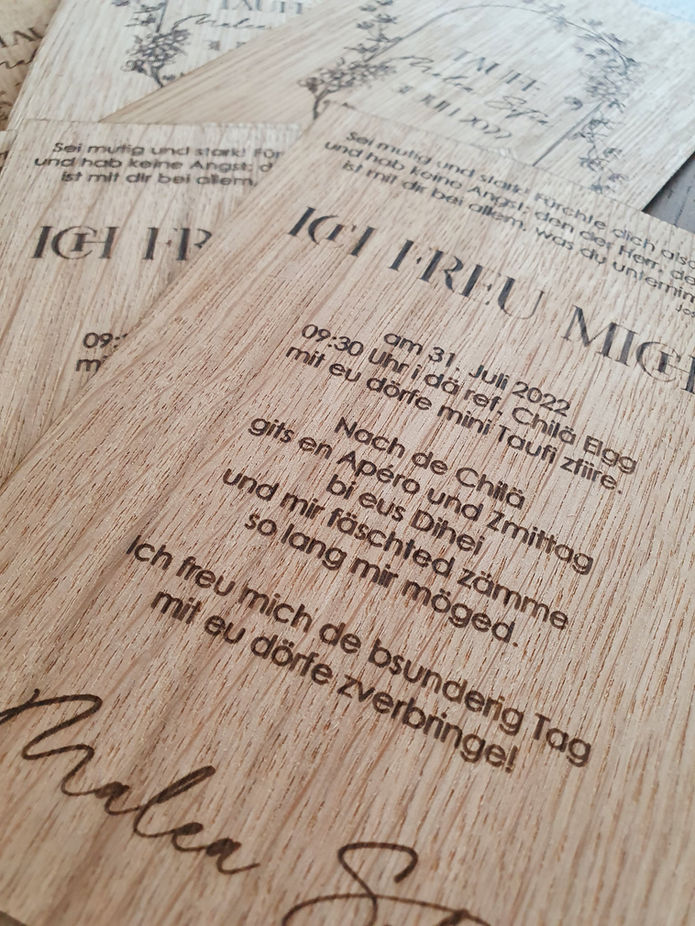 TAUFE
31. JULI 2022
Sei mutig und stark! Für
und hab keine Angst; d
ist mit dir bei allem,
ICH FR
09:
mi
Sei mutig und stark! Fürchte dich also
und hab keine Angst; den der Herr, de
ist mit dir bei allem, was du unternim
ICH FREU MICH
am 31. Juli 2022
09:30 Uhr i dä ref. Chilä Elgg
mit eu dörfe mini Taufi zfiire.
Nach de Chilä
gits en Apéro und Zmittag
bi eus Dihei
und mir fäschted zämme
so lang mir möged.
Ich freu mich de bsunderig Tag
mit eu dörfe zverbringe!
Malea S